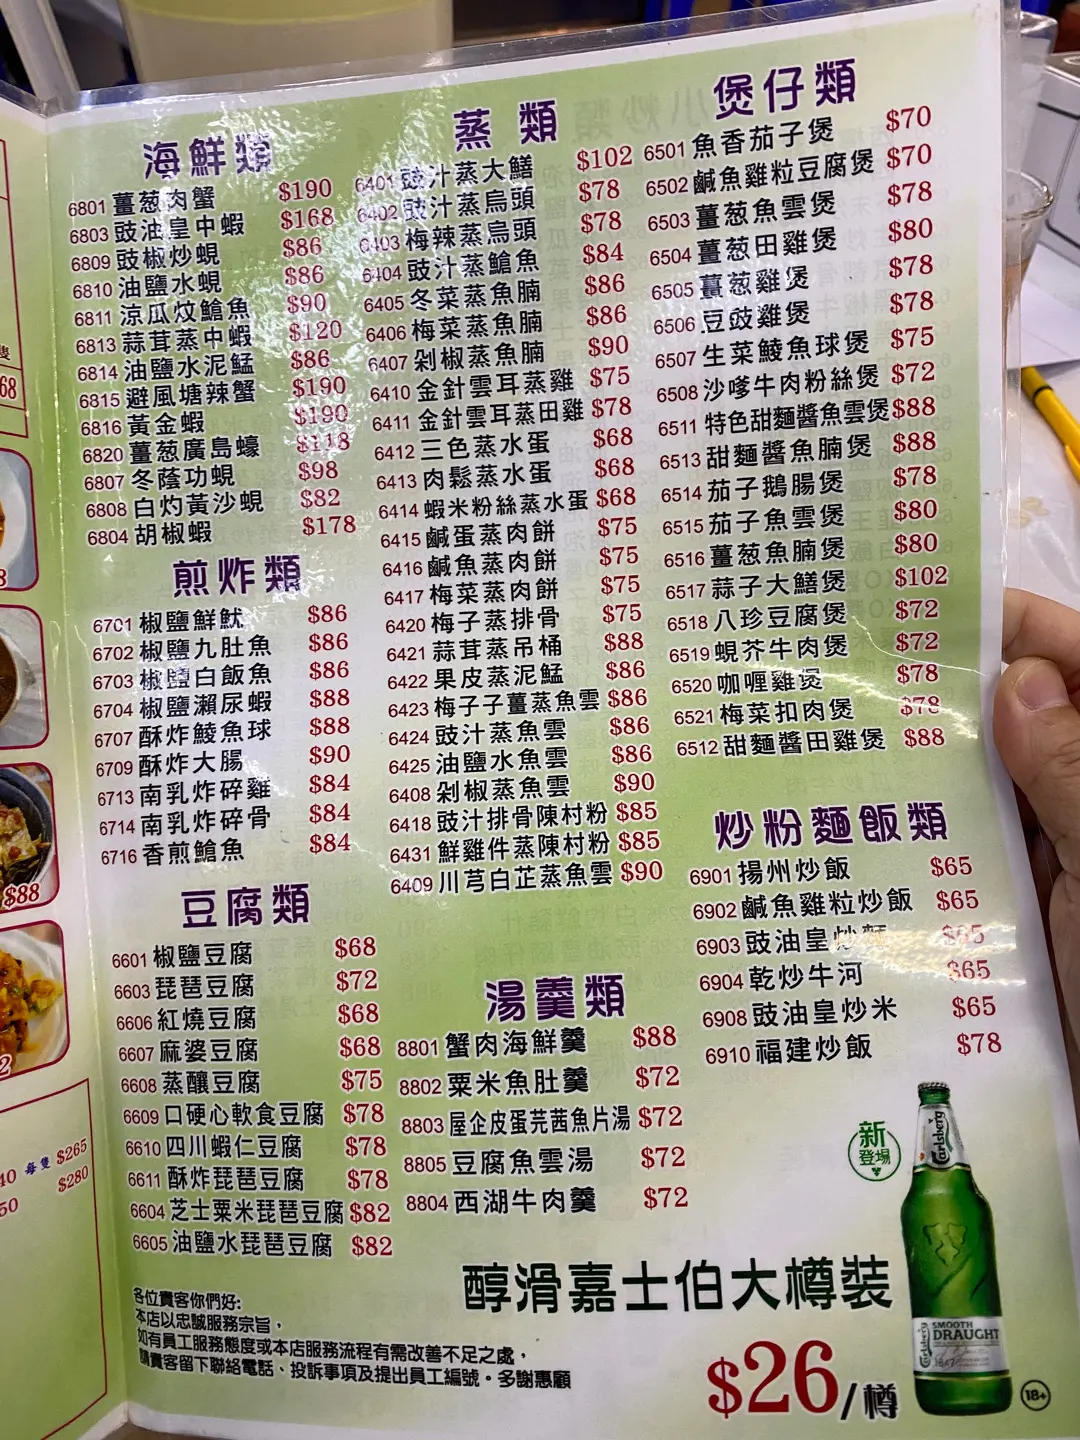 海鮮類
6801 薑葱肉蟹 $190
6803 豉油皇中蝦 $168
6809 豉椒炒蜆 $86
6810 油鹽水蜆 $86
6811 涼瓜炆鱠魚 $90
6813 蒜茸蒸中蝦 $120
6814 油鹽水泥鯭 $86
6815 避風塘辣蟹 $190
6816 黃金蝦 $190
6820 薑葱廣島蠔 $118
6807 冬蔭功蜆 $98
6808 白灼黃沙蜆 $82
6804 胡椒蝦 $178
煎炸類
6701 椒鹽鮮魷 $86
6702 椒鹽九肚魚 $86
6703 椒鹽白飯魚 $86
6704 椒鹽瀨尿蝦 $88
6707 酥炸鯪魚球 $88
6709 酥炸大腸 $90
6713 南乳炸碎雞 $84
6714 南乳炸碎骨 $84
6716 香煎鱠魚 $84
豆腐類
6601 椒鹽豆腐 $68
6603 琵琶豆腐 $72
6606 紅燒豆腐 $68
6607 麻婆豆腐 $68
6608 蒸釀豆腐 $75
6609 口硬心軟食豆腐 $78
6610 四川蝦仁豆腐 $78
6611 酥炸琵琶豆腐 $78
6604 芝士粟米琵琶豆腐 $82
6605 油鹽水琵琶豆腐 $82
蒸類
6401 豉汁蒸大鱔 $102
6402 豉汁蒸烏頭 $78
6403 梅辣蒸烏頭 $78
6404 豉汁蒸鱠魚 $84
6405 冬菜蒸魚腩 $86
6406 梅菜蒸魚腩 $86
6407 剁椒蒸魚腩 $90
6410 金針雲耳蒸雞 $75
6411 金針雲耳蒸田雞 $78
6412 三色蒸水蛋 $68
6413 肉鬆蒸水蛋 $68
6414 蝦米粉絲蒸水蛋 $68
6415 鹹蛋蒸肉餅 $75
6416 鹹魚蒸肉餅 $75
6417 梅菜蒸肉餅 $75
6420 梅子蒸排骨 $75
6421 蒜茸蒸吊桶 $88
6422 果皮蒸泥鯭 $86
6423 梅子子薑蒸魚雲 $86
6424 豉汁蒸魚雲 $86
6425 油鹽水魚雲 $86
6408 剁椒蒸魚雲 $90
6418 豉汁排骨陳村粉 $85
6431 鮮雞件蒸陳村粉 $85
6409 川芎白芷蒸魚雲 $90
湯羹類
8801 蟹肉海鮮羹 $88
8802 粟米魚肚羹 $72
8803 屋企皮蛋芫茜魚片湯 $72
8805 豆腐魚雲湯 $72
8804 西湖牛肉羹 $72
煲仔類
6501 魚香茄子煲 $70
6502 鹹魚雞粒豆腐煲 $70
6503 薑葱魚雲煲 $78
6504 薑葱田雞煲 $80
6505 薑葱雞煲 $78
6506 豆豉雞煲 $78
6507 生菜鯪魚球煲 $75
6508 沙嗲牛肉粉絲煲 $72
6511 特色甜麵醬魚雲煲 $88
6513 甜麵醬魚腩煲 $88
6514 茄子鵝腸煲 $78
6515 茄子魚雲煲 $80
6516 薑葱魚腩煲 $80
6517 蒜子大鱔煲 $102
6518 八珍豆腐煲 $72
6519 蜆芥牛肉煲 $72
6520 咖喱雞煲 $78
6521 梅菜扣肉煲 $78
6512 甜麵醬田雞煲 $88
炒粉麵飯類
6901 揚州炒飯 $65
6902 鹹魚雞粒炒飯 $65
6903 豉油皇炒麵 $65
6904 乾炒牛河 $65
6908 豉油皇炒米 $65
6910 福建炒飯 $78
新
登場
Carlsberg
SMOOTH
DRAUGHT
Carlsberg
1847
18+
醇滑嘉士伯大樽裝
$26/樽
各位貴客你們好:
本店以忠誠服務宗旨，
如有員工服務態度或本店服務流程有需改善不足之處，
請貴客留下聯絡電話、投訴事項及提出員工編號。多謝惠顧
$88
每隻 $265
$280